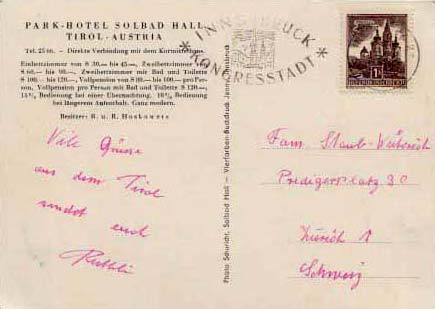 PARK-HOTEL SOLBAD HALL
TIROL-AUSTRIA
Tel. 25 66. – Direkte Verbindung mit dem Kurmittelhaus.
Einbettzimmer von S 30.— bis 45—, Zweibettzimmer von
S 60.— bis 90.—, Zweibettzimmer mit Bad und Toilette
S 100.— bis 120.—, Vollpension von S 80.— bis 100.— pro Person,
Vollpension pro Person mit Bad und Toilette S 120.—,
15% Bedienung bei einer Übernachtung, 10% Bedienung
bei längerem Aufenthalt. Ganz modern.
Besitzer: R. u. R. Huskowetz
INNSBRUCK
*KONGRESSTADT*
Viele Grüsse
aus dem Tirol
sendet euch
Ruthli
Photo Schuricht, Solbad Hall – Vierfarben-Buchdruck Jenny, Innsbruck
Fam. Staub-Wüterich
Predigerplatz 30
Zürich 1
Schweiz